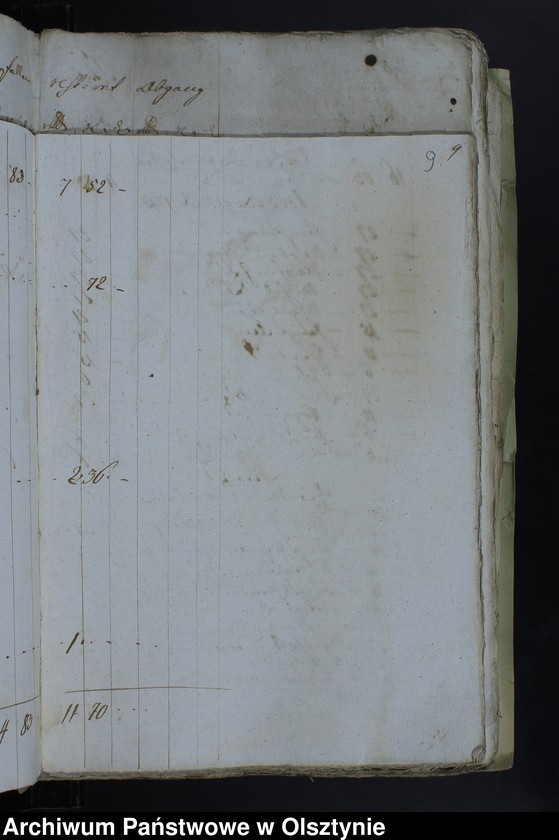 restirt Abgang
9 9
83 - 7 52 -
72 -
2 36 -
1 " - - -
4 83 11 70 - - -
Archiwum Państwowe w Olsztynie